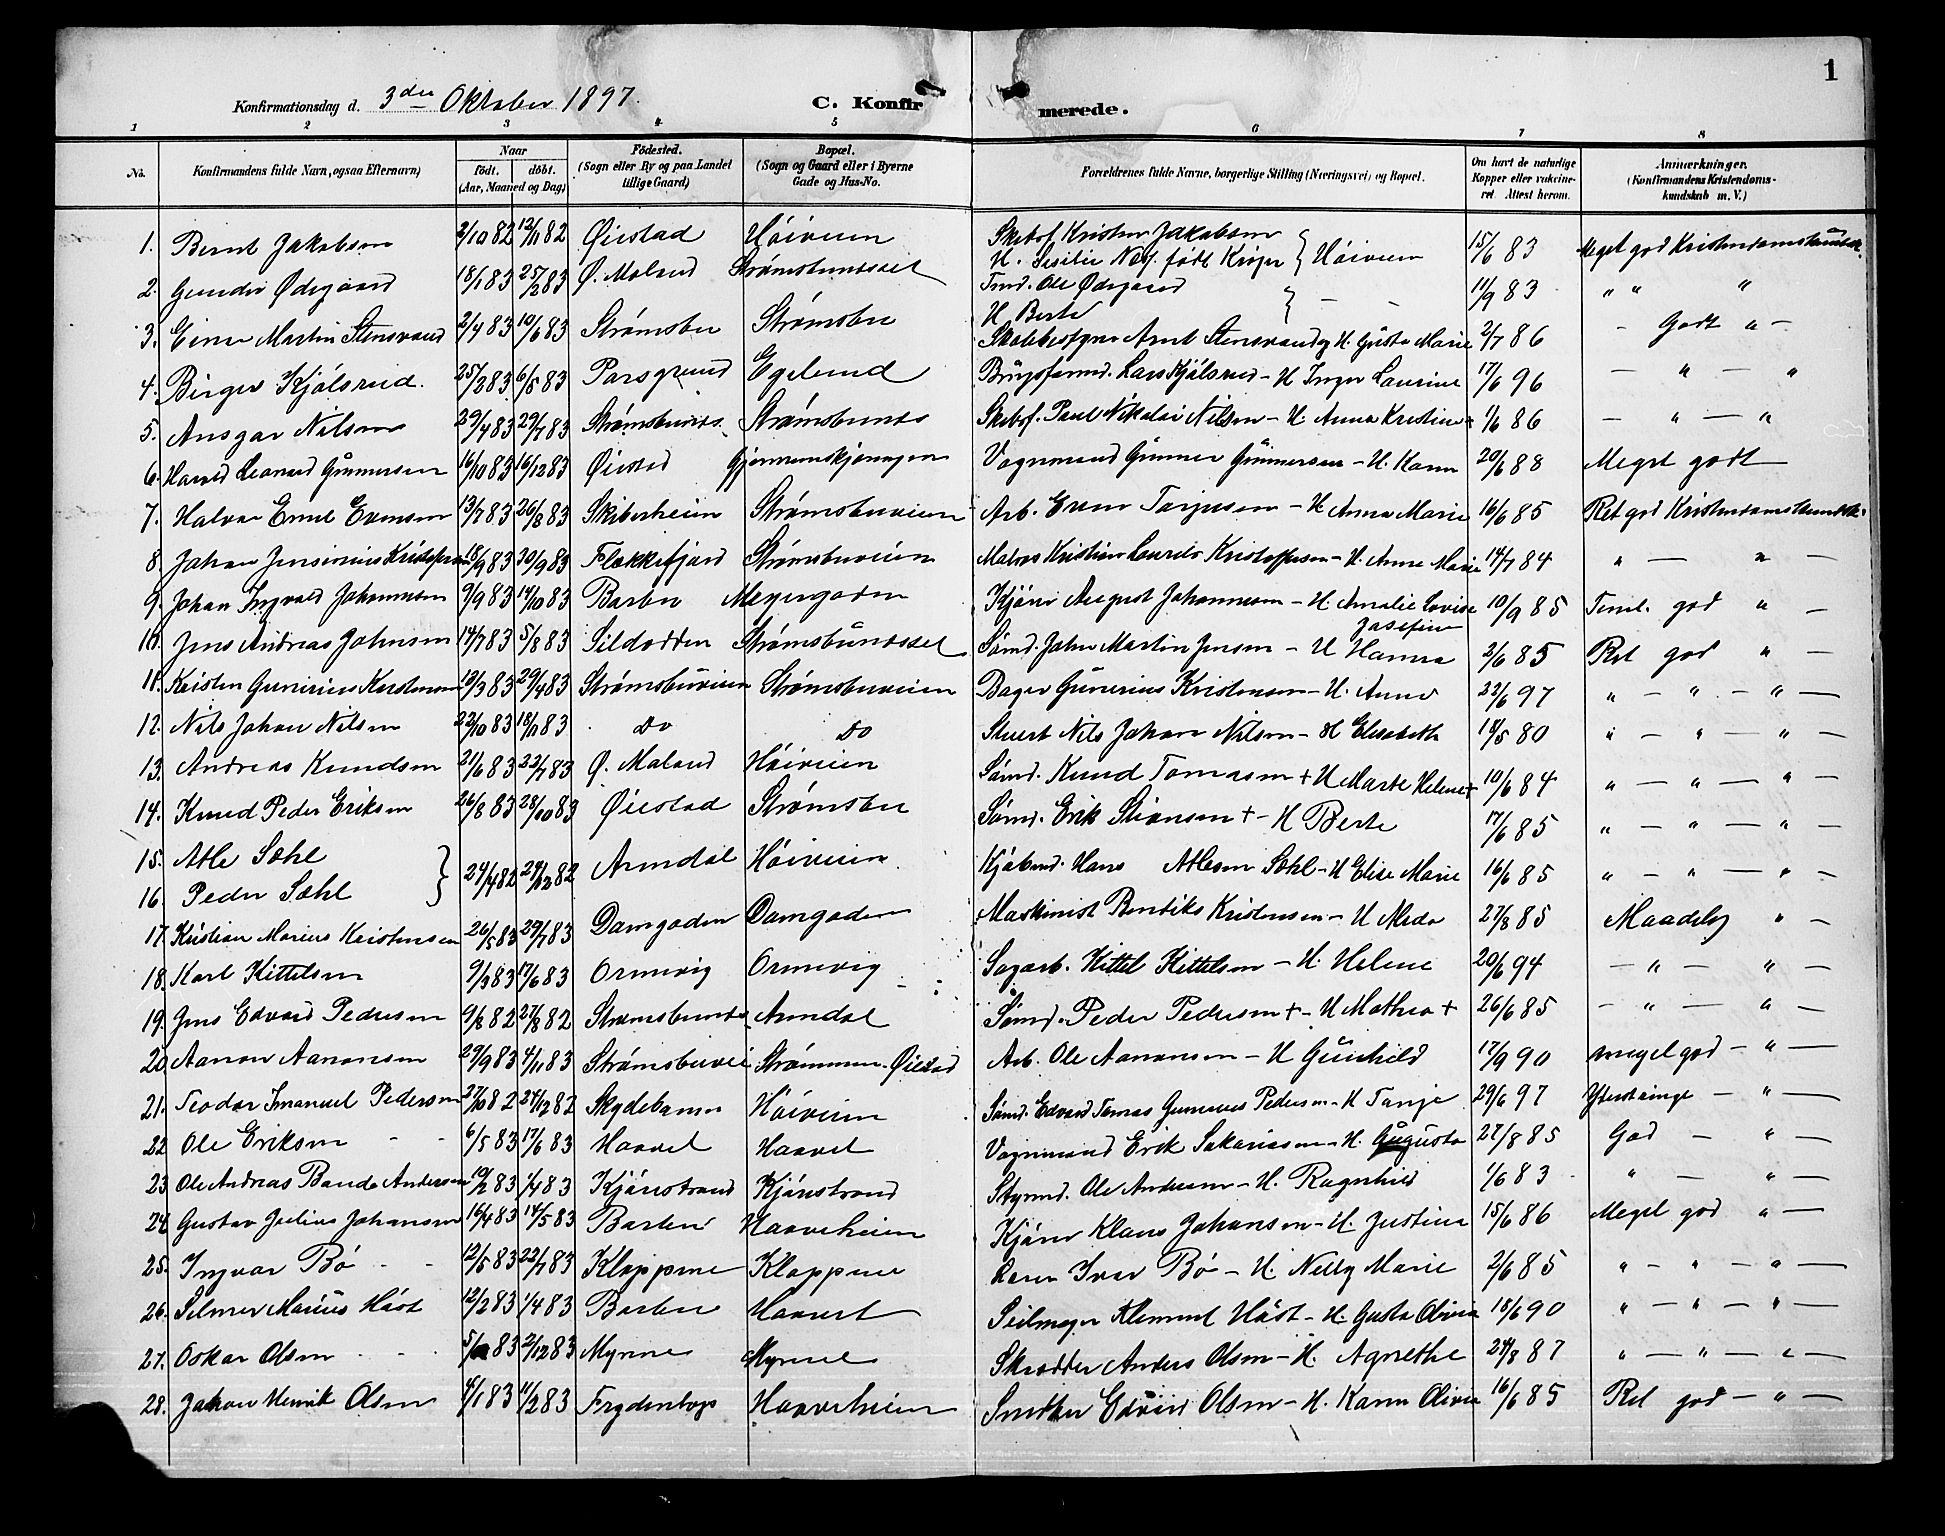 1
Konfirmationsdag d. 3die Oktober 1897. C. Konfirmerede.
1 2 3 4 5 6 7 8
No. Konfirmandens fulde Navn, ogsaa Efternavn) Naar født. døbt. (Aar, Maaned og Dag) Fødested. (Sogn eller By og paa Landet tillige Gaard) Bopæl. (Sogn og Gaard eller i Byerne Gade og Hus-No. Forældrenes fulde Navne, borgerlige Stilling (Næringsvei) og Bopæl. Om havt de naturlige Kopper eller vakcineret. Attest herom. Anmærkninger. (Konfirmandens Kristendomskundskab m. V.)
1. Bernt Jakobsen 2/10 82 12/11 82 Øiestad Høiveien Skibsf. Kristen Jakobsen H. Sesilie født Krøger } Høiveien 15/6 83 Meget god Kristendomskundsk.
2. Gunder Ødegaard 18/1 83 25/2 83 Ø. Moland Strømsbundsset Tmd. Ole Ødegaard H Berte } — - 11/9 83 " " "
3. Einar Martin Stensvand 2/4 83 10/6 83 Strømsbu Strømsbu Skibbestyrer Arnt Stensvand og H. Gusta Marie 2/7 86 - Godt " -
4. Birger Kjølsrud. 25/2 83 6/5 83 Porsgrund Egelund Brugsformd. Lars Kjølsrud - H Inger Laurine 17/6 96 — " — "
5. Ansgar Nilsen 29/4 83 29/7 83 Strømsbunds Strømsbunds Skibsf. Paul Nikolai Nilsen - H Anna Kristine 1/6 86 — " — "
6. Harald Leonard Gunnersen 16/10 83 16/12 83 Øiestad Gjennemskjæringen Vognmand Gunner Gunnersen - H. Karen 20/6 88 Meget godt
7. Halvor Emil Evensen 13/7 83 26/8 83 Skiberheien Strømsbuveien Arb. Even Torjusen - H Anna Marie 16/6 85 Ret god Kristendomskundsk.
8. Johan Jensinius Kristofersen 18/9 83 30/9 83 Flekkefjord Strømsbuveien Matros Kristian Lauritz Kristoffersen - H. Anne Marie 14/7 84 " — " —
9. Johan Ingvald Johannesen 9/9 83 14/10 83 Barbu Meyergaden Kjører August Johannesen - H Amalie Lovise Josefine 10/9 85 Teml. god " —
10. Jens Andreas Johnsen 14/7 83 5/8 83 Sildodden Strømsbundsset Sømd. John Martin Jensen - H Hanna 2/6 85 Ret god " —
11. Kristen Gunerius Kristensen 10/3 83 29/4 83 Strømsbuveien Strømsbuveien Bager Gunerius Kristensen - H. Anne 22/6 97 " — " — " —
12. Nils Johan Nilsen 22/10 83 18/11 83 Do Do Stuert Nils Johan Nilsen - H Elisabeth 18/5 80 " — " — " —
13. Andreas Knudsen 21/6 83 22/7 83 Ø. Moland Høiveien Sømd. Knud Tomasen + H Marte Helene + 10/6 84 " — " — " —
14. Knud Peder Eriksen 26/8 83 28/10 83 Øiestad Strømsbu Sømd. Erik Stiansen + - H Berte 17/6 85 " — " — " —
15. Atle Sæhl
16. Peder Sæhl } 24/4 82 24/12 82 Arendal Høiveien Kjøbmd. Hans Atlesen Sæhl - H Elise Marie 16/6 85 " — " — " —
17. Kristian Marius Kristensen 26/5 83 29/7 83 Damgaden Damgaden Maskinist Bendiks Kristensen - H Meda 27/8 85 Maadelig " —
18. Karl Kittelsen 9/3 83 17/6 83 Ormevig Ormevig Sagarb. Kittel Kittelsen - H. Helene 20/6 94 — " — " —
19. Jens Edvard Pedersen 9/8 82 27/8 82 Strømsbunds Arendal Sømd. Peder Pedersen + - H Mathea + 26/6 85 — " — " —
20. Aanon Aanonsen 29/9 83 4/11 83 Strømsbuvei Strømmen Øiestad Arb. Ole Aanonsen - H Gunhild 17/9 90 meget god — " —
21. Teodor Imanuel Pedersen 27/10 82 24/12 82 Skydebanen Høiveien Sømd. Edvard Tomas Gunerius Pedersen - H Tonje 29/6 97 Yderst ringe — " —
22 Ole Eriksen - - 6/5 83 17/6 83 Haavet Haavet Vognmand Erik Sakariasen - H. Augusta 27/8 85 God — " —
23 Ole Andreas Bande Andersen 10/2 83 1/4 83 Kjønstrand Kjønstrand Styrmd. Ole Andersen - H. Ragnhild 1/6 83 " — " —
24. Gustav Julius Johansen 16/4 83 14/5 83 Barbu Haaveheien Kjører Klaus Johansen - H. Justina 15/6 86 Meget god " —
25. Ingvar Bø - - 12/5 83 22/7 83 Kloppene Kloppene Ivar Bø - H. Nelly Marie 2/6 85 " - " - " —
26. Selmer Marius Høst 12/2 83 1/4 83 Barbu Haavet Seilmager Klement Høst - H. Gusta Olivia 18/6 90 " — " — " —
27. Oskar Olsen - - - 83 2/12 83 Myrene Myrene Skrædder Anders Olsen - H. Agnethe 24/8 87 " — " — " —
28. Johan Henrik Olsen 4/1 83 11/2 83 Frydenborg Haaveheien Smeden Edvard Olsen - H. Karen Olivia 16/6 85 Ret god — " —